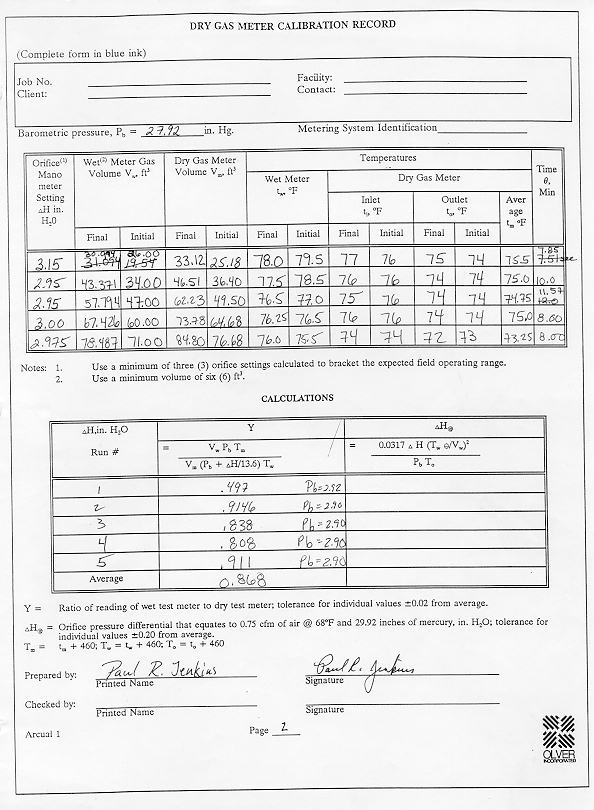 DRY GAS METER CALIBRATION RECORD
(Complete form in blue ink)
Job No. Facility:
Client: Contact:
Barometric pressure, P_b = 27.92 in. Hg. Metering System Identification
Orifice(1) Mano meter Setting ΔH in. H₂0 | Wet(2) Meter Gas Volume V_w, ft³ | Dry Gas Meter Volume V_m, ft³ | Temperatures | Time θ, Min
Wet Meter t_w, °F | Dry Gas Meter
Inlet t_i, °F | Outlet t_o, °F | Average t_m °F
Final Initial Final Initial Final Initial Final Initial Final Initial
30.094 26.00 7.85
3.15 31.094 19.54 33.12 25.18 78.0 79.5 77 76 75 74 75.5 7.51sec
2.95 43.371 34.00 46.51 36.40 77.5 78.5 76 76 74 74 75.0 10.0
11.57
2.95 57.794 47.00 62.23 49.50 76.5 77.0 75 76 74 74 74.75 12.0
3.00 67.426 60.00 73.78 64.68 76.25 76.5 76 76 74 74 75.0 8.00
2.975 78.487 71.00 84.80 76.68 76.0 75.5 74 74 72 73 73.25 8.00
Notes: 1. Use a minimum of three (3) orifice settings calculated to bracket the expected field operating range.
2. Use a minimum volume of six (6) ft³.
CALCULATIONS
ΔH,in. H₂O Run # | Y = V_w P_b T_m / V_m (P_b + ΔH/13.6) T_w | ΔH@ = 0.0317 Δ H (T_w θ/V_w)² / P_b T_o
1 .497 Pb=2.92
2 .9146 Pb=2.90
3 .838 Pb=2.90
4 .808 Pb=2.90
5 .911 Pb=2.90
Average 0.868
Y = Ratio of reading of wet test meter to dry test meter; tolerance for individual values ±0.02 from average.
ΔH@ = Orifice pressure differential that equates to 0.75 cfm of air @ 68°F and 29.92 inches of mercury, in. H₂O; tolerance for
individual values ±0.20 from average.
T_m = t_m + 460; T_w = t_w + 460; T_o = t_o + 460
Prepared by: Paul R. Jenkins Paul R. Jenkins
Printed Name Signature
Checked by:
Printed Name Signature
Arcual 1 Page 2
OLVER
INCORPORATED